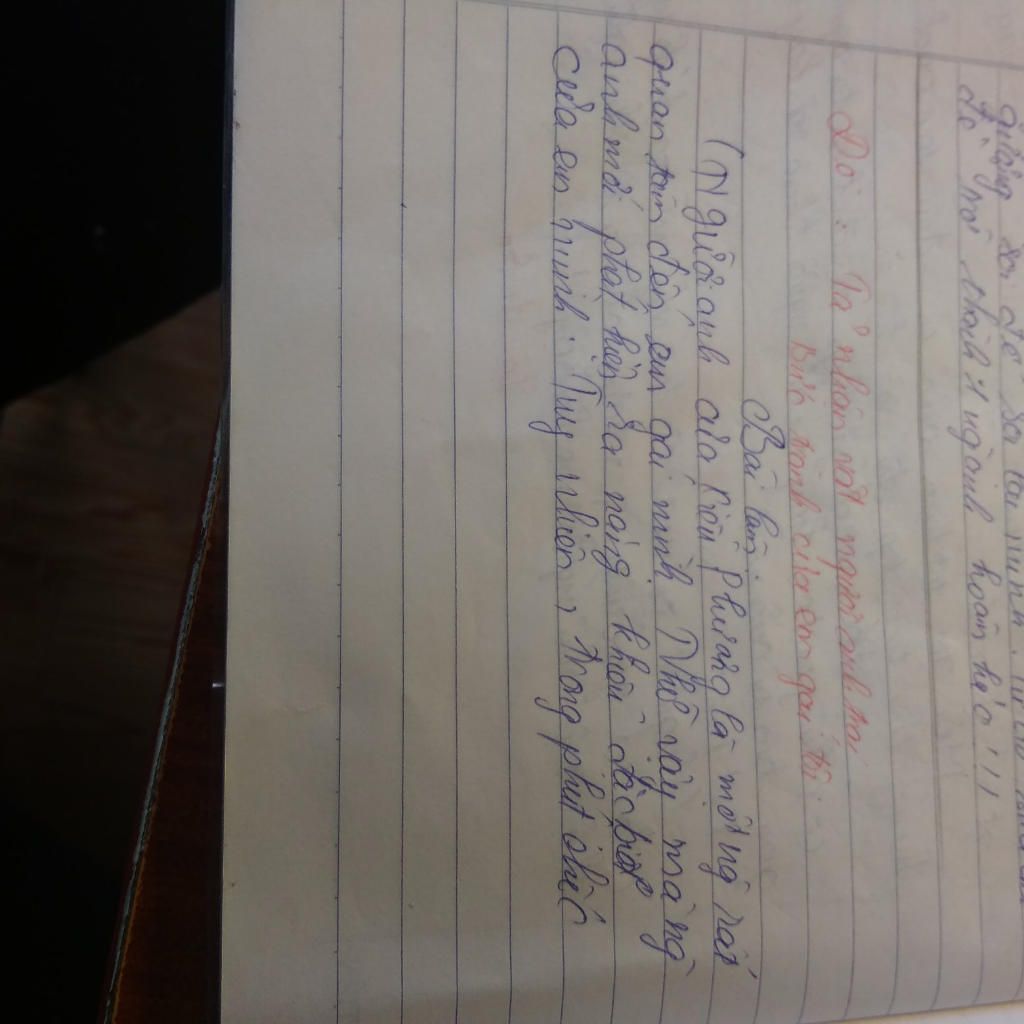 để trở thành 1 ng anh hoàn hảo!!!
Đề: Tả nhân vật người anh trai
Bức tranh của em gái tôi.
Bài làm.
(Người anh của Kiều Phương là một ng rất
quan tâm đến em gái mình. Nhờ vậy mà ng
anh mới phát hiện ra năng khiếu đặc biệt
của em mình. Tuy nhiên, trong phút chốc